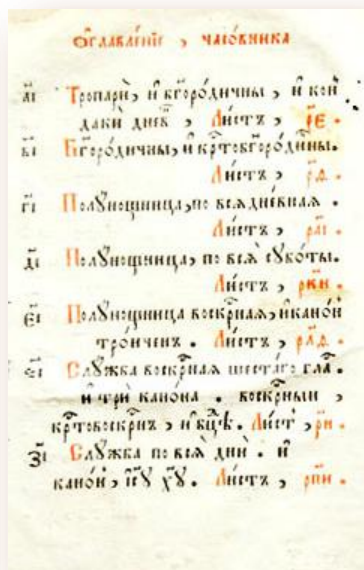 Ѡ҆главле́нїе , часо́вника
а҃і Тропарѝ , и҆ бг҃оро́дичны , и҆ кон
даки̑ дне́в , Ли́стъ , р҃е .
в҃і Бг҃оро́дичны , и҆ крⷭ҇тобг҃оро́дины .
Ли́стъ ,
г҃і Полꙋ́нощница , по всѧ̀дне́вная .
Ли́стъ , ра҃і
д҃і Полꙋ́нощница , по всѧ̀ сꙋбо́ты .
Ли́стъ , рк҃и .
є҃і Полꙋ́нощница воскрⷭ҇ная , и҆ кано́н
тро́иченъ . Ли́стъ ,
ѕ҃і Слꙋ́жба воскрⷭ҇ная шеста́го гла́ .
и҆ трѝ кано́на . воскрⷭ҇ныи ,
крⷭ҇товоскрⷭ҇нъ , и҆ бц҃ѣ . Ли́ст ,
з҃і Слꙋ́жба по всѧ̀ дни̑ . и҆
кано́н , і҆с҃ꙋ хр҃ꙋ . Ли́стъ , рп҃и .